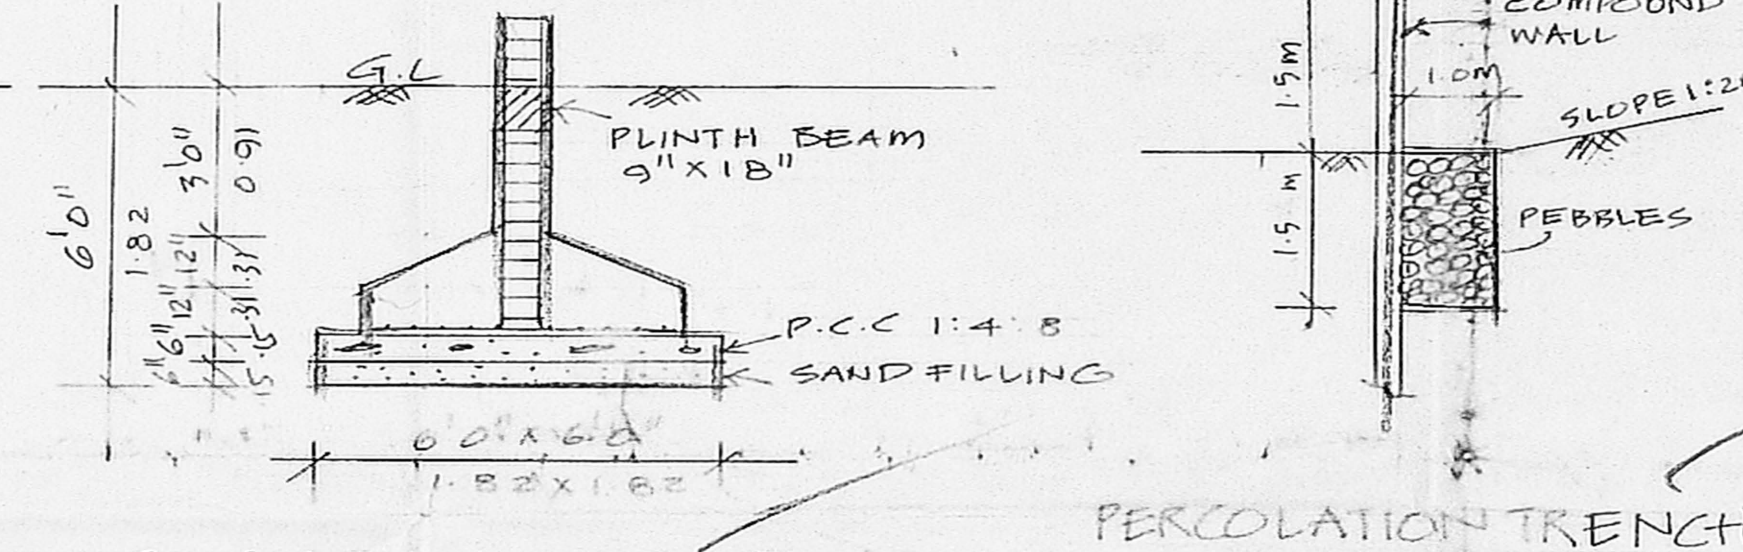 G.L
PLINTH BEAM
9"X18"
6'0"
1.82
3'0"
0.91
12"
.31
12"
.31
6"
.15
6"
15
P.C.C 1:4:8
SAND FILLING
6'0"X6'0"
1.82X1.82
COMPOUND
WALL
1.5m
1.0m
SLOPE 1:2
1.5 m
PEBBLES
PERCOLATION TRENCH